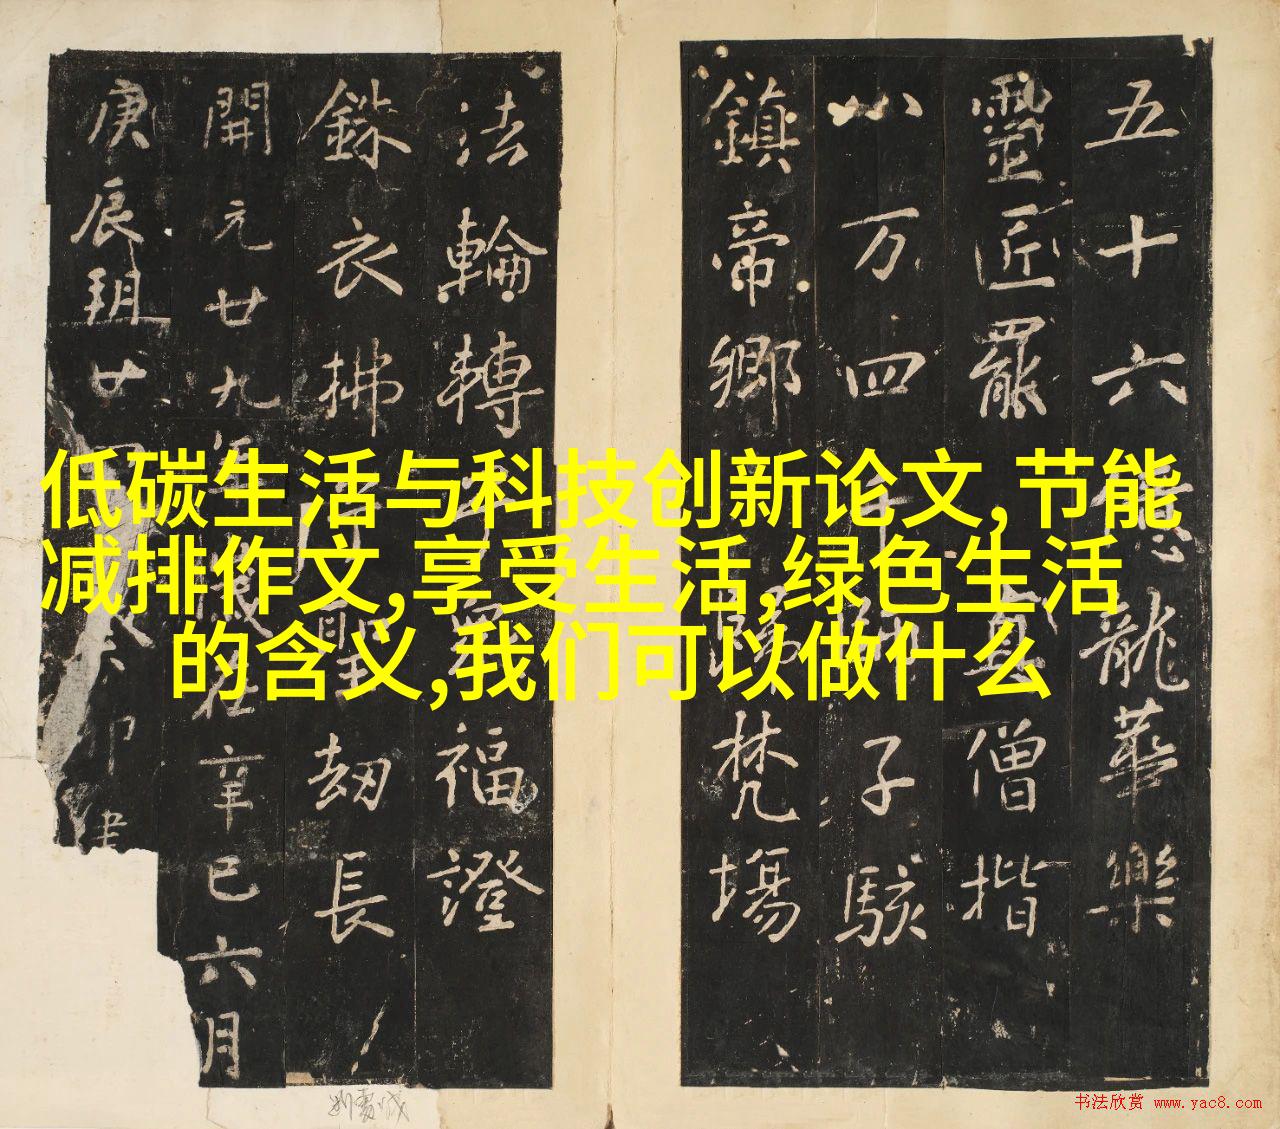 低碳生活与科技创新论文,节能
减排作文,享受生活,绿色生活
的含义,我们可以做什么
五十六億龍華樂
靈匠罷
僧揩
八万四千
子駭
鎮帝鄉歸梵場
法輪轉
福證
銖衣拂
聖劫長
開元廿九年
在辛巳六月
庚辰玥廿
书法欣赏 www.yac8.com